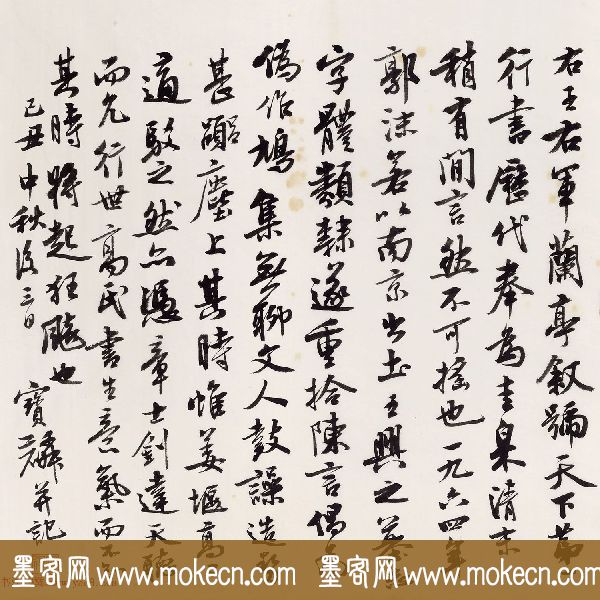 右王右军蘭亭叙號天下第
行書歷代奉為圭臬清末
稍有間言然不可搖也一九六四年
郭沫若以南京出土王興之墓
字體類隸遂重拾陳言倡
偽作鳩集無聊文人鼓譟造
甚囂塵上其時惟姜堰高
適駁之然亦憑章士釗達天聽
而允行世高氏書生意氣而不
其時將起狂飈也
己丑中秋後三日 寶麟并記
墨客网 www.mokecn.com 墨客网 www.mokecn.com